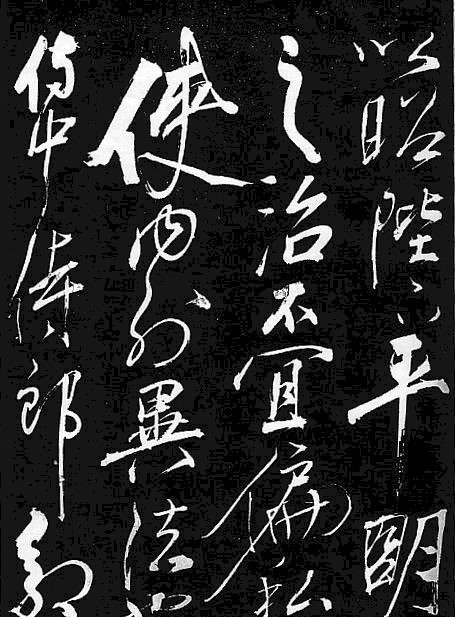 以昭陛下平明
之治不宜偏私
使内外異法也
侍中侍郎郭